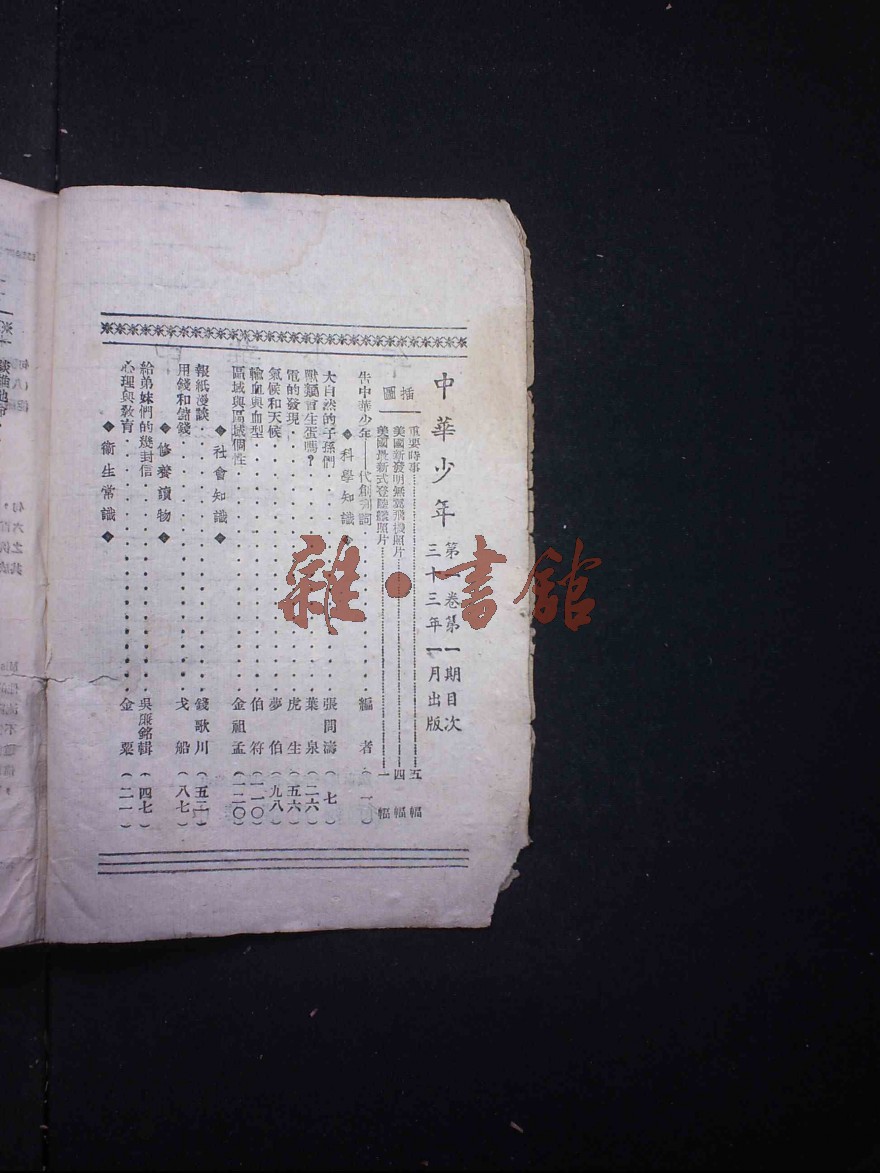 中華少年 第一卷第一期目次
三十三年一月出版
插圖
重要時事……五幅
美國新發明無翼飛機照片……四幅
美國最新式登陸艇照片……一幅
告中華少年——代創刊詞……編者(一)
◆科學知識◆
大自然的子孫們……張問濤(七)
獸類會生蛋嗎?……葉泉(二六)
電的發現……虎生(五六)
氣候和天候……夢伯(九八)
輸血與血型……伯符(一一〇)
區域與區域個性……金祖孟(一二〇)
◆社會知識◆
報紙漫談……錢歌川(五二)
用錢和儲錢……戈船(八七)
◆修養讀物◆
給弟妹們的幾封信……吳廉銘輯(四七)
心理與敎育……金粟(二一)
◆衞生常識◆
雜·書館